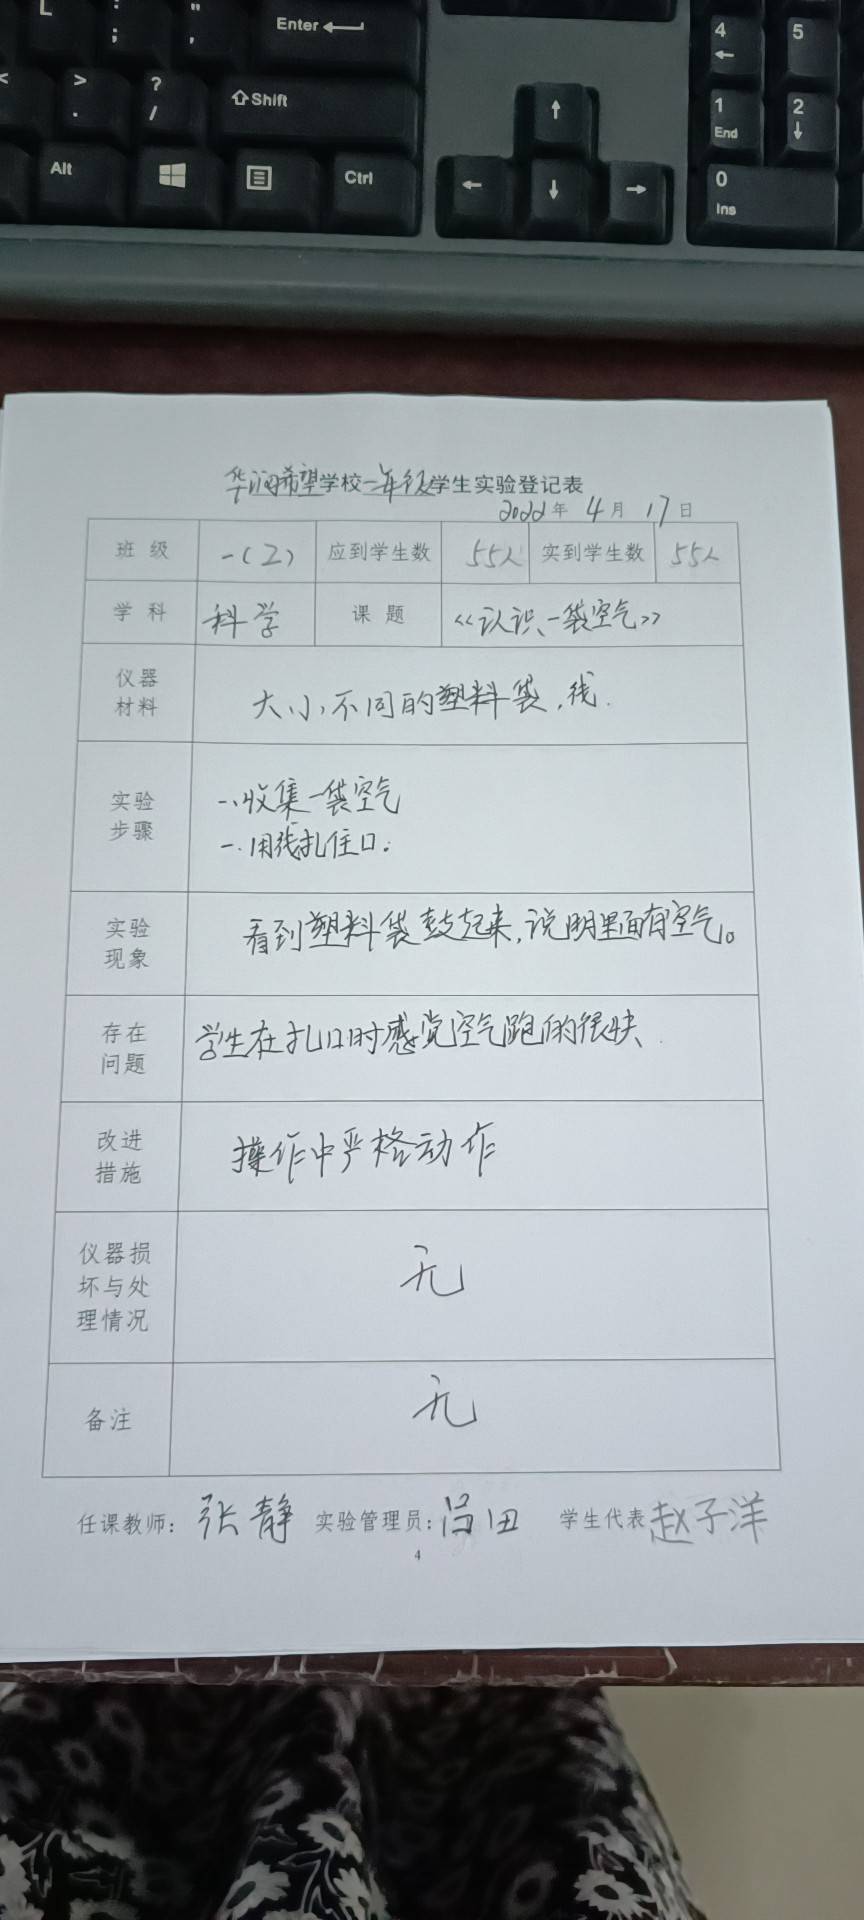 L : ; " ' Enter
< > . ? / Shift
Alt Ctrl
4 5
1 End 2
0 Ins
华润希望学校一年级学生实验登记表
2022年 4月 17日
班 级 一(2) 应到学生数 55人 实到学生数 55人
学 科 科学 课 题 《认识一袋空气》
仪器
材料
大小不同的塑料袋,线.
实验
步骤
一、收集一袋空气
一.用线扎住口.
实验
现象
看到塑料袋鼓起来,说明里面有空气。
存在
问题
学生在扎口时感觉空气跑的很快.
改进
措施
操作中严格动作
仪器损
坏与处
理情况
无
备注
无
任课教师: 张静 实验管理员: 吕田 学生代表 赵子洋
4